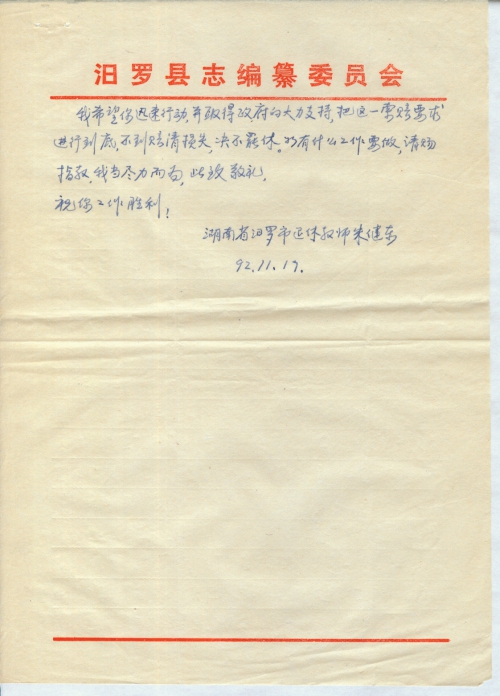 汨罗县志编纂委员会
我希望你迅速行动并取得政府的大力支持,把这一索赔要求
进行到底,不到赔清损失,决不罢休。如有什么工作要做,请赐
指教,我当尽力而为,此致敬礼。
祝你工作胜利!
湖南省汨罗市退休教师朱健东
92.11.17.